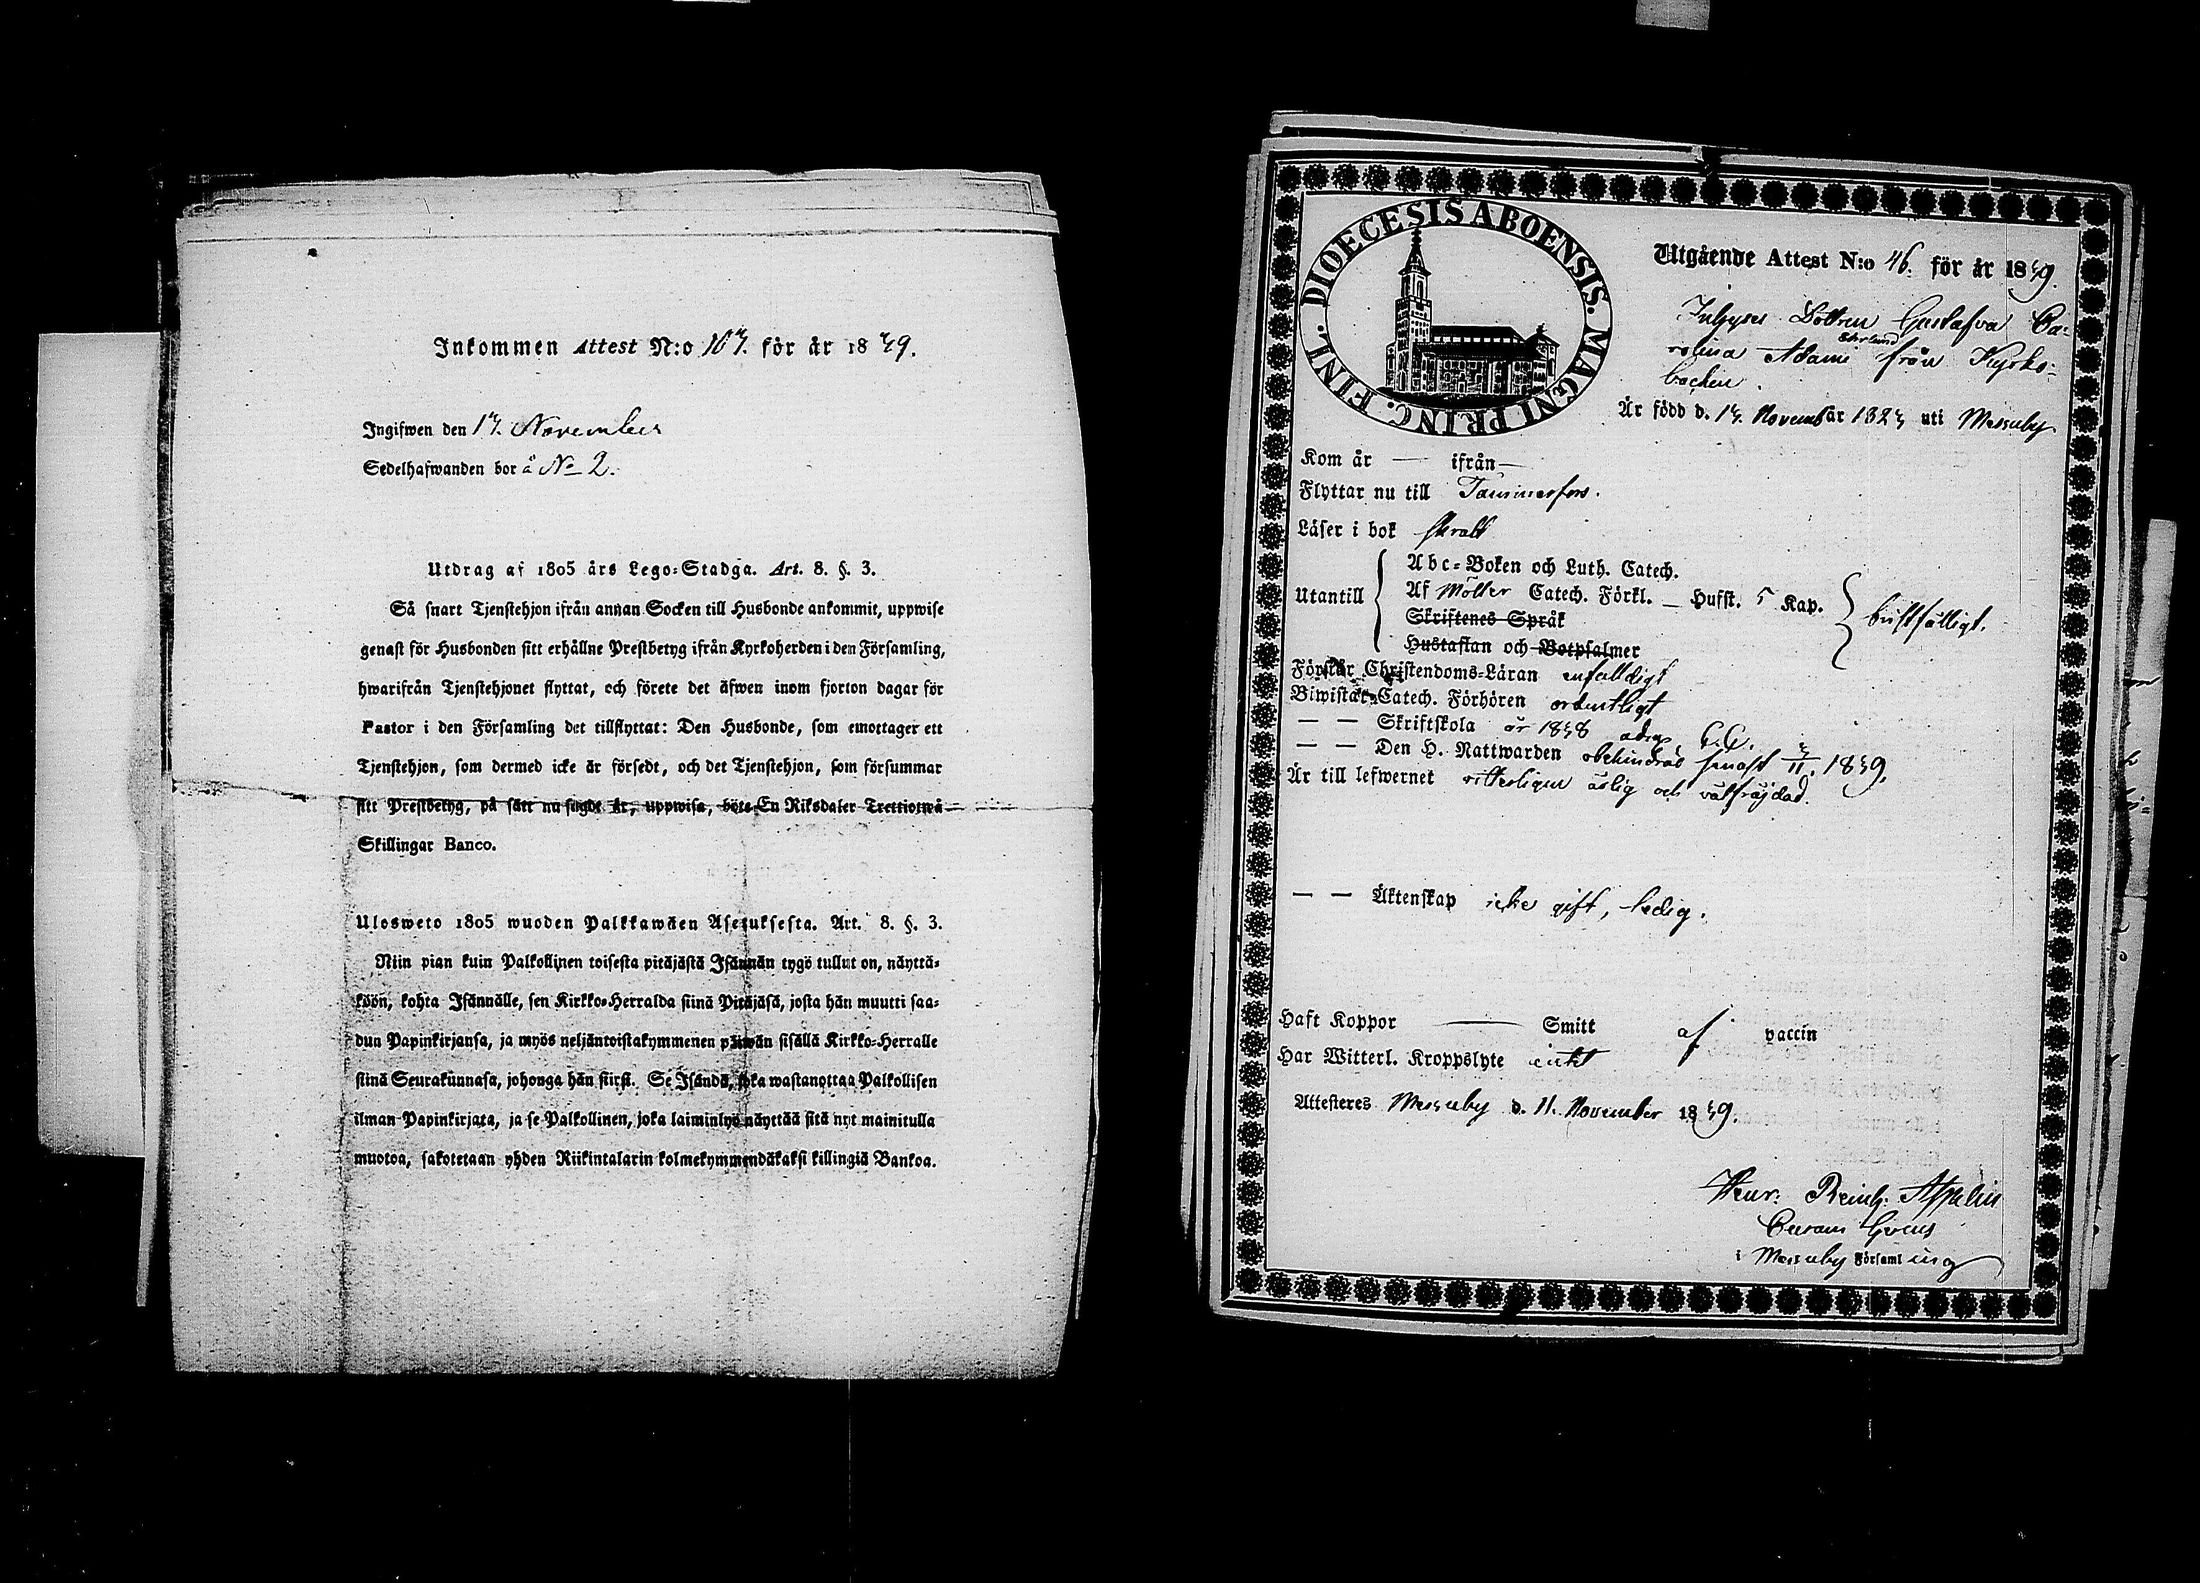 Inkommen Attest N:o 107. för år 1849.
Ingifwen den 17. November
Sedelhafwanden bor å No 2.
Utdrag af 1805 års Lego-Stadga. Art. 8. §. 3.
Så snart Tjenstehjon ifrån annan Socken till Husbonde ankommit, uppwise
genast för Husbonden sitt erhållne Prestbetyg ifrån Kyrkoherden i den Församling,
hwarifrån Tjenstehjonet flyttat, och förete det äfwen inom fjorton dagar för
Pastor i den Församling det tillflyttat: Den Husbonde, som emottager ett
Tjenstehjon, som dermed icke är försedt, och det Tjenstehjon, som försummar
sitt Prestbetyg, på sätt nu sagdt är, uppwisa, böte En Riksdaler Trettiotwå
Skillingar Banco.
Ulosweto 1805 wuoden Palkkawäen Asetuksesta. Art. 8. §. 3.
Niin pian kuin Palkollinen toisesta pitäjästä Isännän tygö tullut on, näyttä-
köön, kohta Isännälle, sen Kirkko-Herralda siinä Pitäjäsä, josta hän muutti saa-
dun Papinkirjansa, ja myös neljäntoistakymmenen päiwän sisällä Kirkko-Herralle
siinä Seurakunnasa, johonga hän siirsi. Se Isändä, joka wastanottaa Palkollisen
ilman Papinkirjata, ja se Palkollinen, joka laiminlyö näyttää sitä nyt mainitulla
muotoa, sakotetaan yhden Riikintalarin kolmekymmendäkaksi killingiä Bankoa.
DIOECESIS ABOENSIS. MAGNI PRINC. FINL.
Utgående Attest N:o 46. för år 1849.
Inhyses Dottren Gustafva Ca-
rolina Adams från Kyrko-
backen.
Är född d. 17. Novemb år 1827 uti Messuby.
Kom år — ifrån —
Flyttar nu till Tammerfors.
Läser i bok
Utantill
Abc-Boken och Luth. Catech.
Af Möller Catech. Förkl. — Hufst. 5 Kap.
Skriftenes Språk
Hustaflan och Botpsalmer
Förstår Christendoms-Läran enfaldigt
Biwistat Catech. Förhören ordentligt
— — Skriftskola år 1848
— — Den H. Nattwarden obehindrad senast 1849.
Är till lefwernet ärlig och välfräjdad.
— — Äktenskap icke gift, ledig.
Haft Koppor — Smitt af vaccin
Har Witterl. Kroppslyte intet
Attesteres Messuby d. 11. November 1849.
Henr. Reinh. Aspelin
i Messuby Församling